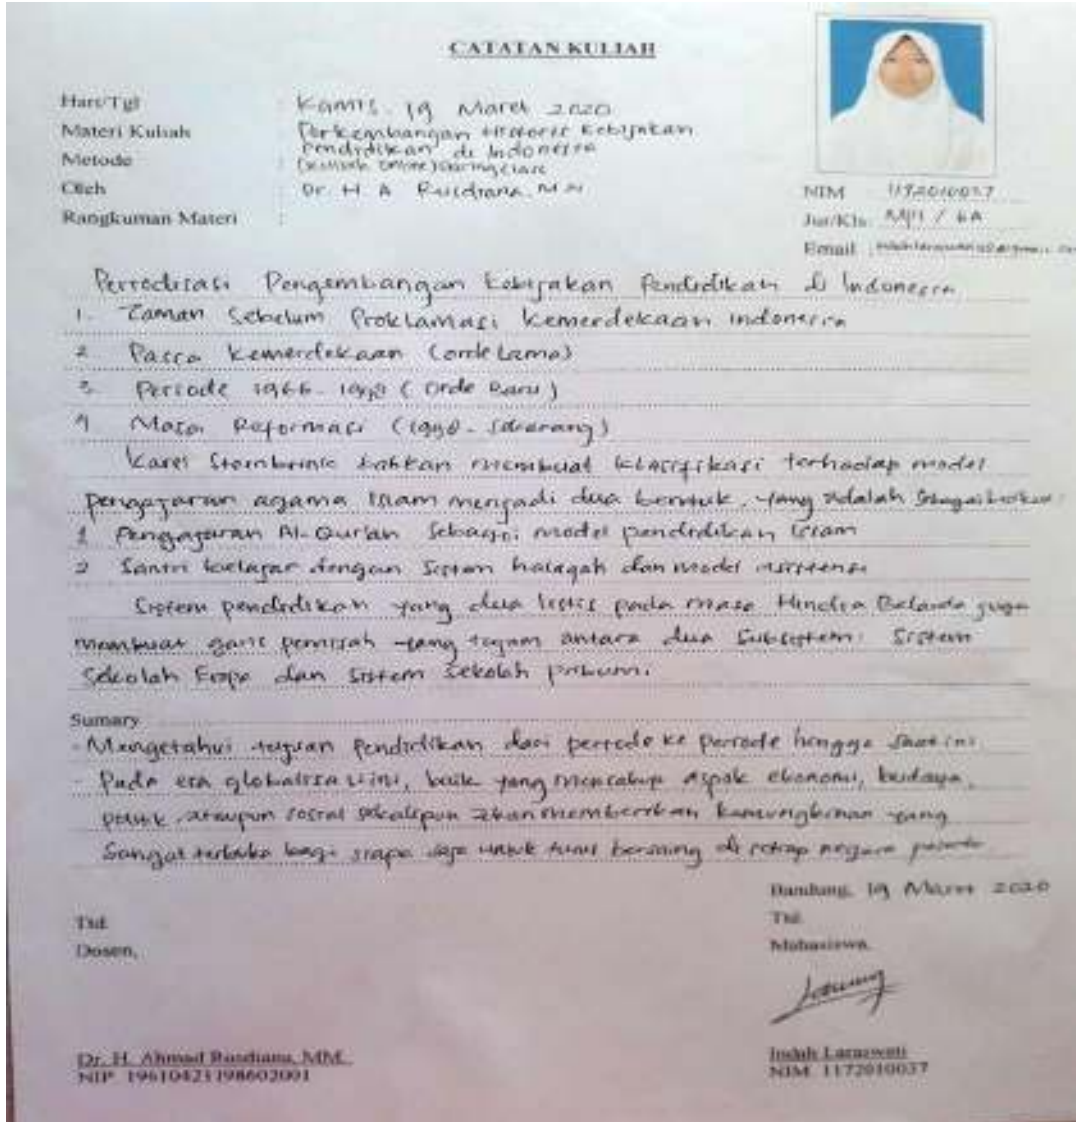 CATATAN KULIAH
Hari/Tgl : Kamis, 19 Maret 2020
Materi Kuliah : Perkembangan Historis Kebijakan
Pendidikan di Indonesia
Metode : (Kuliah Online) Sharing Class
Oleh : Dr. H. A Rusdiana. MM
Rangkuman Materi :
NIM 1172010037
Jur/Kls: MPI / 6A
Email :
Periodisasi Pengembangan kebijakan Pendidikan di Indonesia
1. Zaman Sebelum Proklamasi Kemerdekaan Indonesia
2. Pasca Kemerdekaan (orde Lama)
3. Periode 1966-1998 (Orde Baru)
4 Masa Reformasi (1998-sekarang)
Karel Steenbrink bahkan membuat klasifikasi terhadap model
pengajaran agama Islam menjadi dua bentuk, yang adalah sebagai berikut:
1 Pengajaran Al-Qur'an Sebagai model pendidikan Islam
2 Santri belajar dengan Sistem halaqah dan model
Sistem pendidikan yang dua pada masa Hindia Belanda juga
membuat garis pemisah yang tajam antara dua Subsistem: Sistem
Sekolah Eropa dan Sistem Sekolah pribumi.
Sumary
- Mengetahui tujuan Pendidikan dari periode ke periode hingga saat ini
- Pada era globalisasi ini, baik yang mencakup aspek ekonomi, budaya,
politik, ataupun sosial sekalipun akan memberikan kemungkinan yang
Sangat terbuka bagi siapa saja untuk di setiap negara
Bandung, 19 Maret 2020
Ttd.
Ttd.
Dosen,
Mahasiswa,
Dr. H. Ahmad Rusdiana, MM.
NIP 19610421198602001
Indah Laraswati
NIM 1172010037